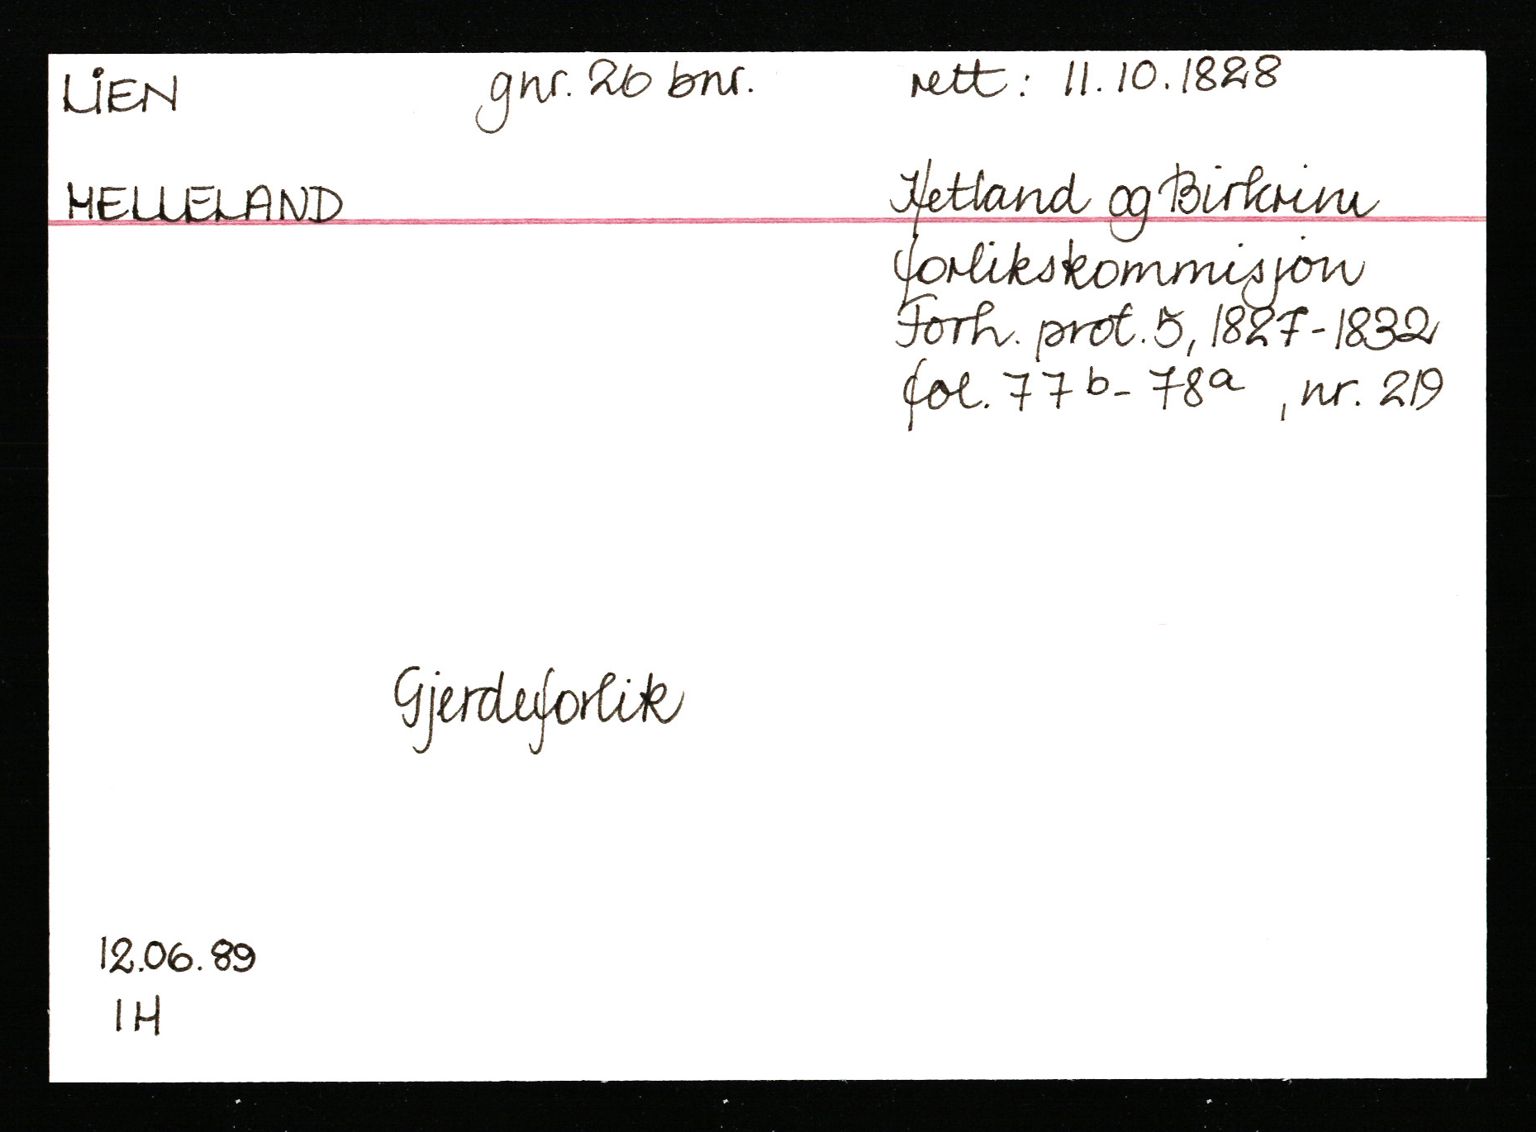 LIEN gnr. 26 bnr. rett: 11.10.1828
HELLELAND Hetland og Birkrim
forlikskommisjon
Forh. prot. 5, 1827-1832
fol. 77b-78a, nr. 219
Gjerdeforlik
12.06.89
IH